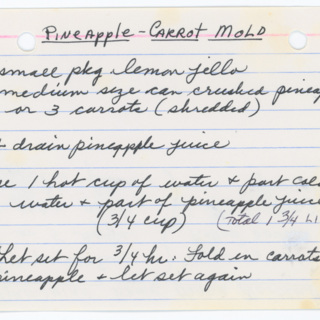 PINEAPPLE - CARROT MOLD
small pkg lemon jello
medium size can crushed pineap
or 3 carrots (shredded)
drain pineapple juice
1 hot cup of water + part col
water + part of pineapple juice
(3/4 cup) (Total 1 3/4 
let set for 3/4 hr. Fold in carrots
pineapple + let set again